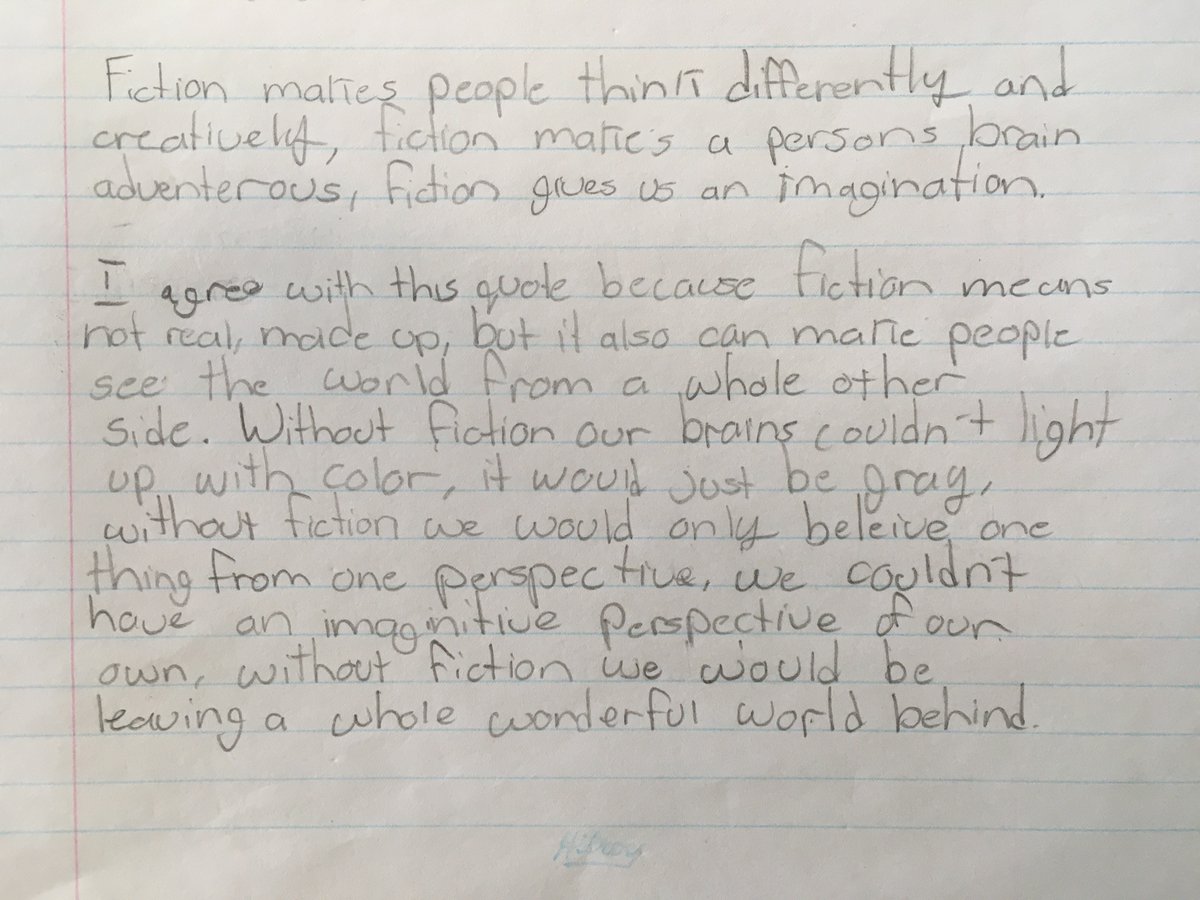 Fiction makes people think differently and
creatively, fiction makes a persons brain
adventerous, fiction gives us an imagination.
I agree with this quote because fiction means
not real, made up, but it also can make people
see the world from a whole other
side. Without fiction our brains couldn't light
up with color, it would just be gray,
without fiction we would only beleive one
thing from one perspective, we couldn't
have an imaginitive perspective of our
own, without fiction we would be
leaving a whole wonderful world behind.